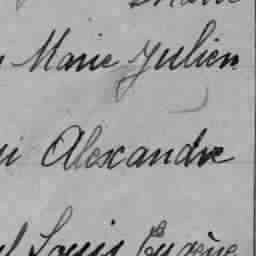 Marie Julien
Alexandre
Louis Eugène